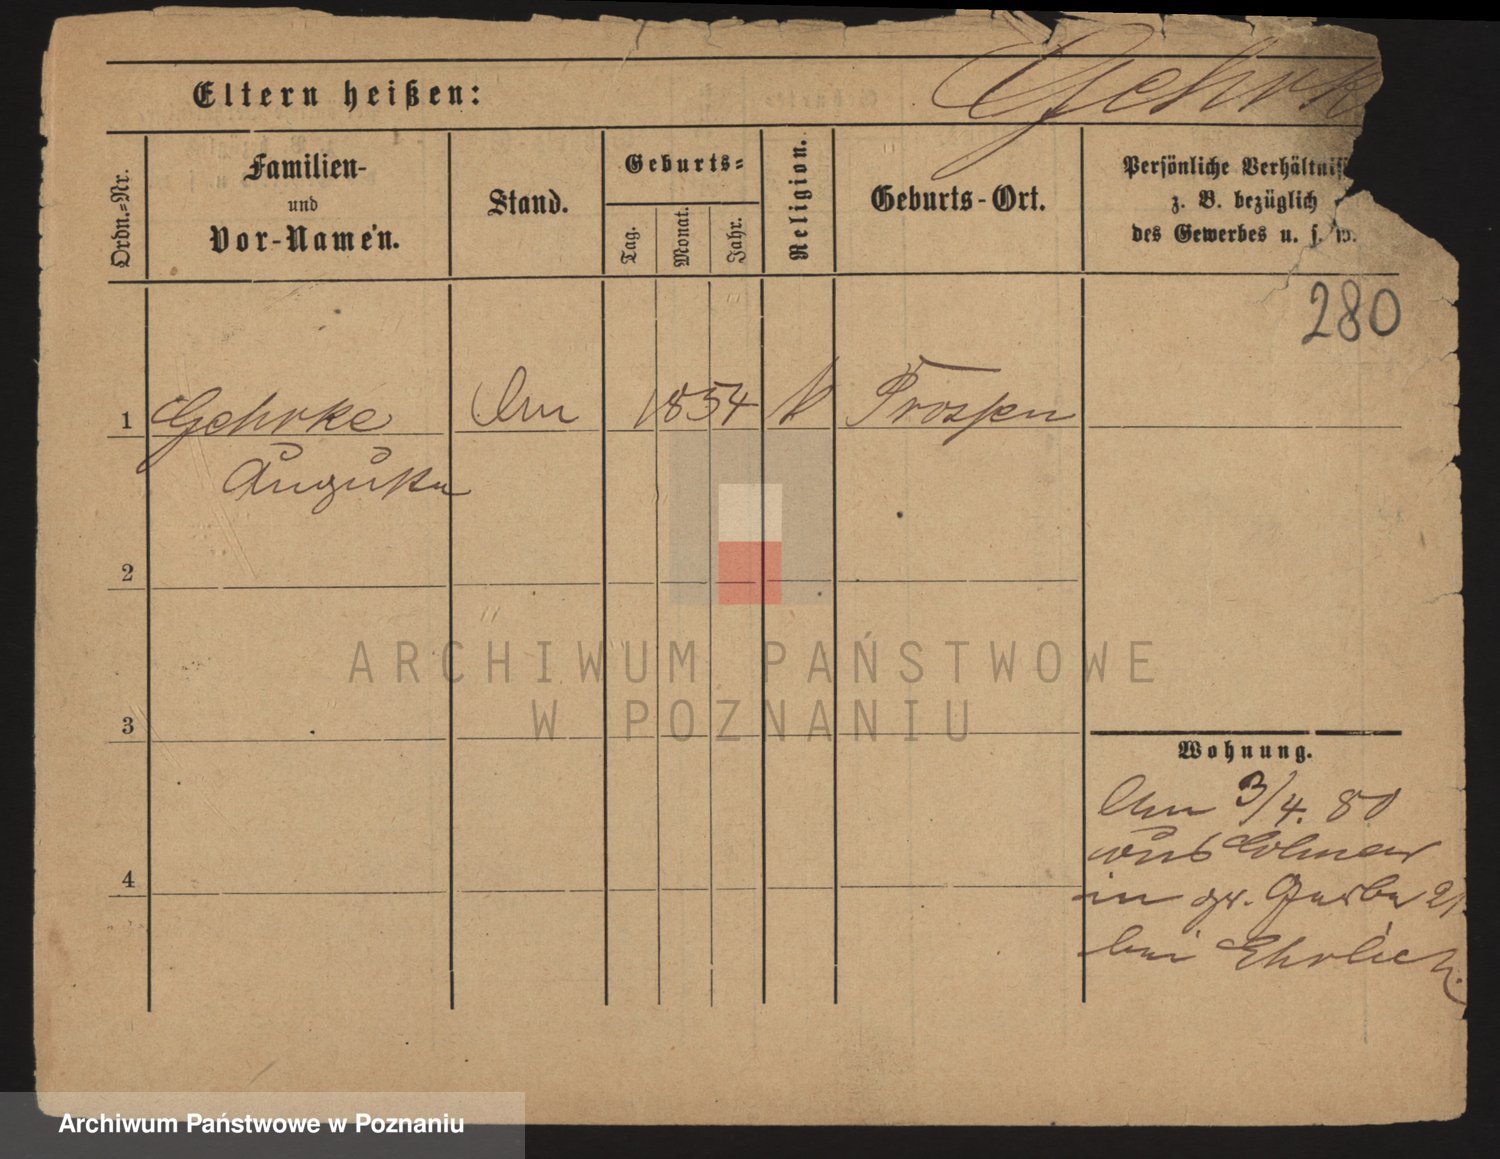 Eltern heißen:
Gehrk
Ordn.=Nr.
Familien-
und
Vor-Namen.
Stand.
Geburts=
Tag.
Monat.
Jahr.
Religion.
Geburts-Ort.
Persönliche Verhältniss
z. B. bezüglich
des Gewerbes u. s. w.
280
1 Gehrke 1854 Prossen
Augusta
2
3
4
Wohnung.
Am 3/4. 80
aus Colmar
in gr. Gerber 21.
bei Ehrlich.
ARCHIWUM PAŃSTWOWE
W POZNANIU
Archiwum Państwowe w Poznaniu